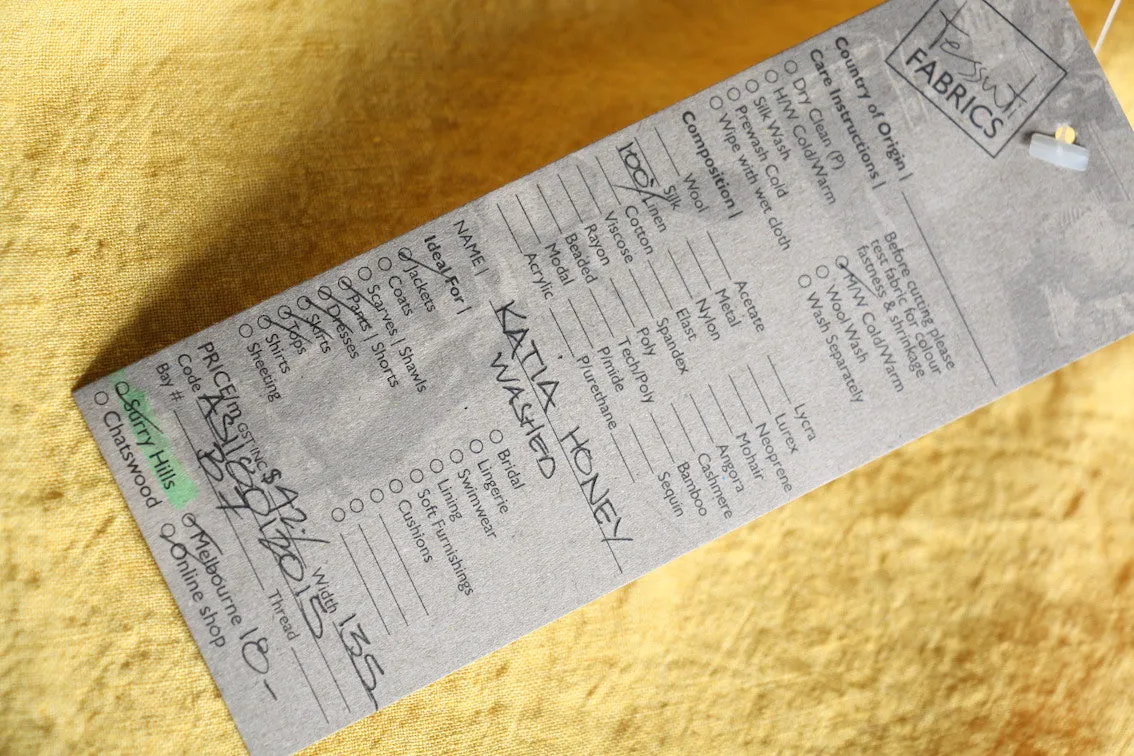 Tessuti
FABRICS
Country of Origin |
Care Instructions |
Before cutting please
test fabric for colour
fastness & shrinkage
Dry Clean (P)
H/W Cold/Warm
Silk Wash
Prewash Cold
Wipe with wet cloth
M/W Cold/Warm
Wool Wash
Wash Separately
Composition |
Wool
Silk
100% Linen
Cotton
Viscose
Rayon
Beaded
Modal
Acrylic
Acetate
Metal
Nylon
Elast
Spandex
Poly
Tech/Poly
P/mide
P/urethane
Lycra
Lurex
Neoprene
Mohair
Angora
Cashmere
Bamboo
Sequin
NAME | KATIA HONEY
WASHED
Ideal For |
Jackets
Coats
Scarves | Shawls
Pants | Shorts
Dresses
Skirts
Tops
Shirts
Sheeting
Bridal
Lingerie
Swimwear
Lining
Soft Furnishings
Cushions
PRICE/m GST INC $ 42./ Width 135
Code
Bay # Thread
Surry Hills
Chatswood
Melbourne 18-
Online shop